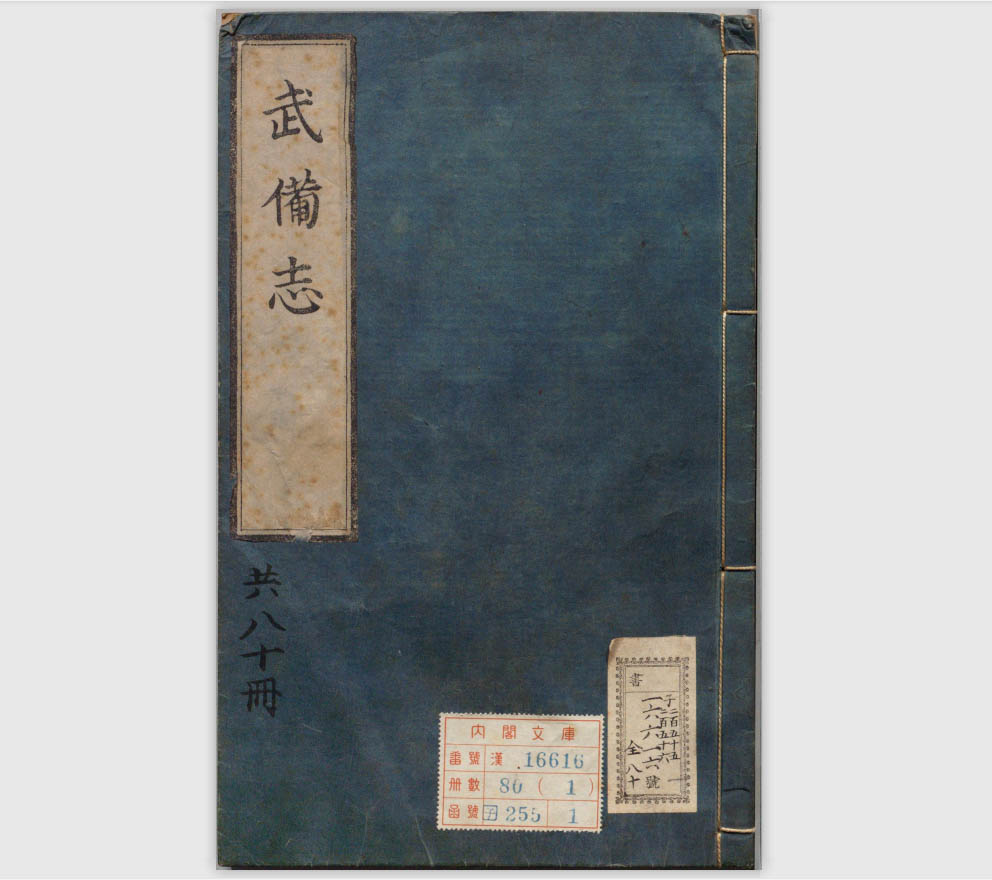 武備志
共八十冊
內閣文庫
番號 漢 16616
冊數 80 ( 1 )
函號 子 255 1
書
子二百五十五
一六六一六號
全八十
一